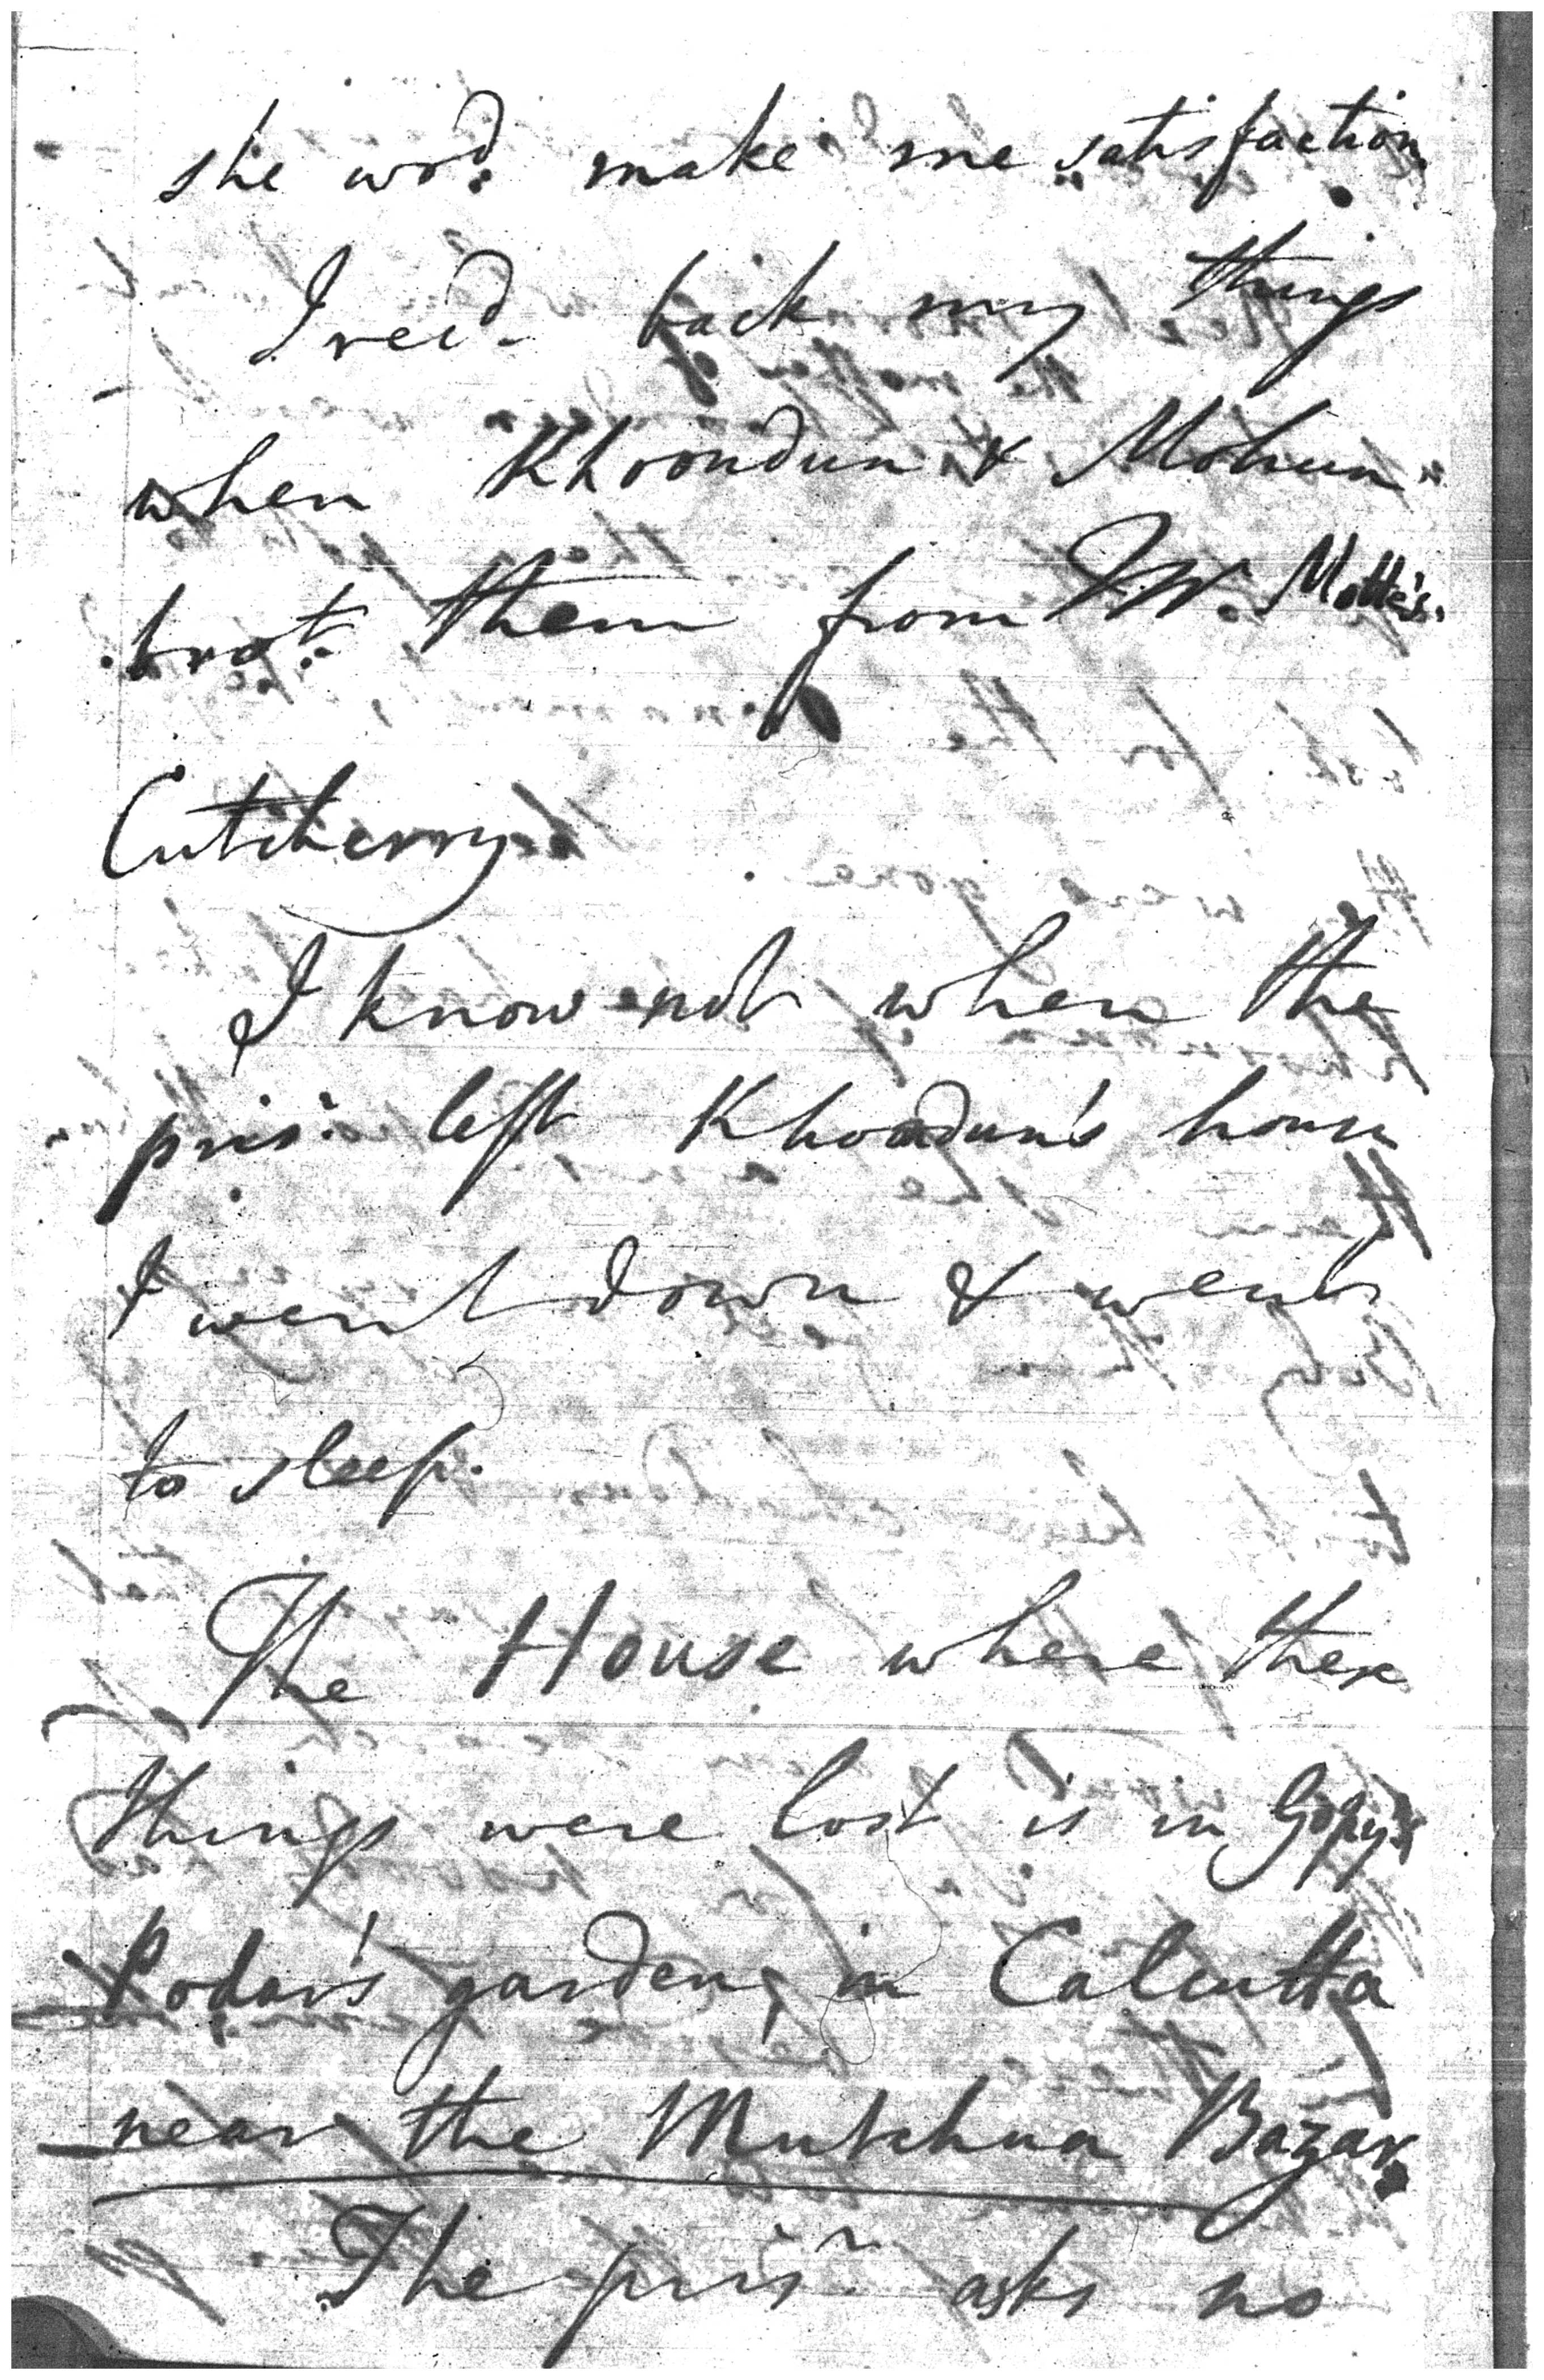 she wo.d make me satisfaction.
I rec.d back my things
when Khoondun & Mohun
bro.t them from Mr. Motte's.
Cutcherry
I know not when the
pris.r left Khoodun's house
I went down & went
to sleep.
The House where these
things were lost is in Gopy's
Podar's garden, in Calcutta
near the Mutchua Bazar.
The pris.r asks no